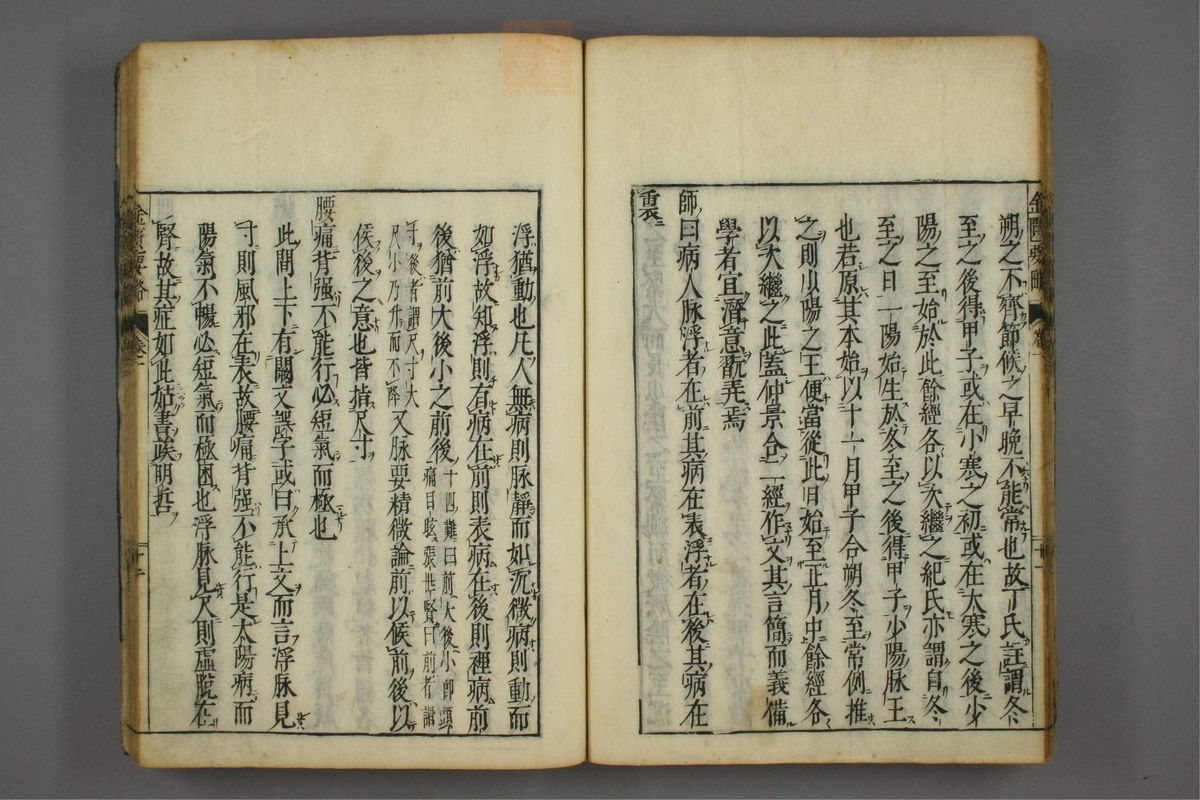 朔之不齊節候之早晚不能常也故丁氏註謂冬
至之後得甲子或在小寒之初或在大寒之後少
陽之至始於此餘經各以次繼之紀氏亦謂自冬
至之日一陽始生於冬至之後得甲子少陽脉王
也若原其本始以十一月甲子合朔冬至常例推
之則以少陽之王便當從此日始至正月中餘經各
以次繼之此蓋仲景合二經作文其言簡而義備
學者宜潛意翫弄焉
師曰病人脉浮者在前其病在表浮者在後其病在
裏
浮猶動也凡人無病則脉靜而如沉微病則動而
如浮故知浮則有病在前則表病在後則裡病前
後猶前大後小之前後十四難曰前大後小即頭
痛目眩張世賢曰前者謂
寸後者謂尺寸大
尺小乃升而不降又脉要精微論前以候前後以
候後之意也皆指尺寸
腰痛背强不能行必短氣而極也
此間上下有闕文誤字或曰承上文而言浮脉見
寸則風邪在表故腰痛背强不能行是太陽病而
陽氣不暢必短氣而極困也浮脉見尺則虛脫在
腎故其症如此姑書竢明哲